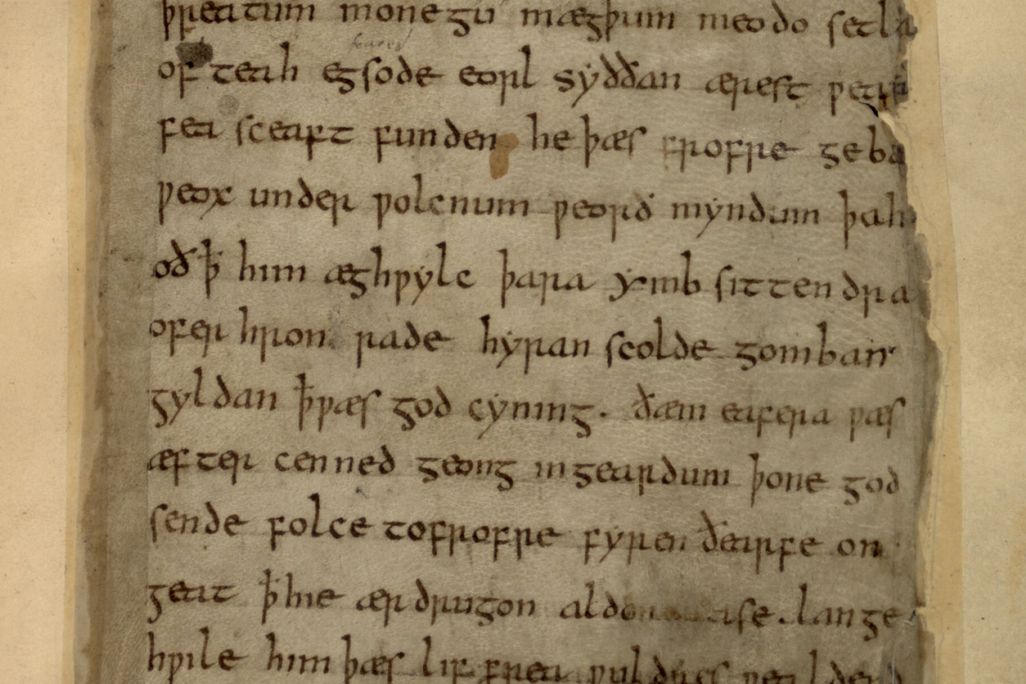 þreatum monegū mægþum meodo setla
of teah egsode eorl syððan ærest wear
fea sceaft funden he þæs frofre geba
weox under wolcnum weorð myndum þah
oð ꝥ him æghwylc þara ymb sittendra
ofer hron rade hyran scolde gomban
gyldan ꝥ wæs god cyning. ðæm eafera wæs
æfter cenned geong in geardum þone god
sende folce tofrofre fyren ðearfe on
geat ꝥ hie ær drugon aldor ase. lange
hwile him þæs lif frea wuldres wealdend